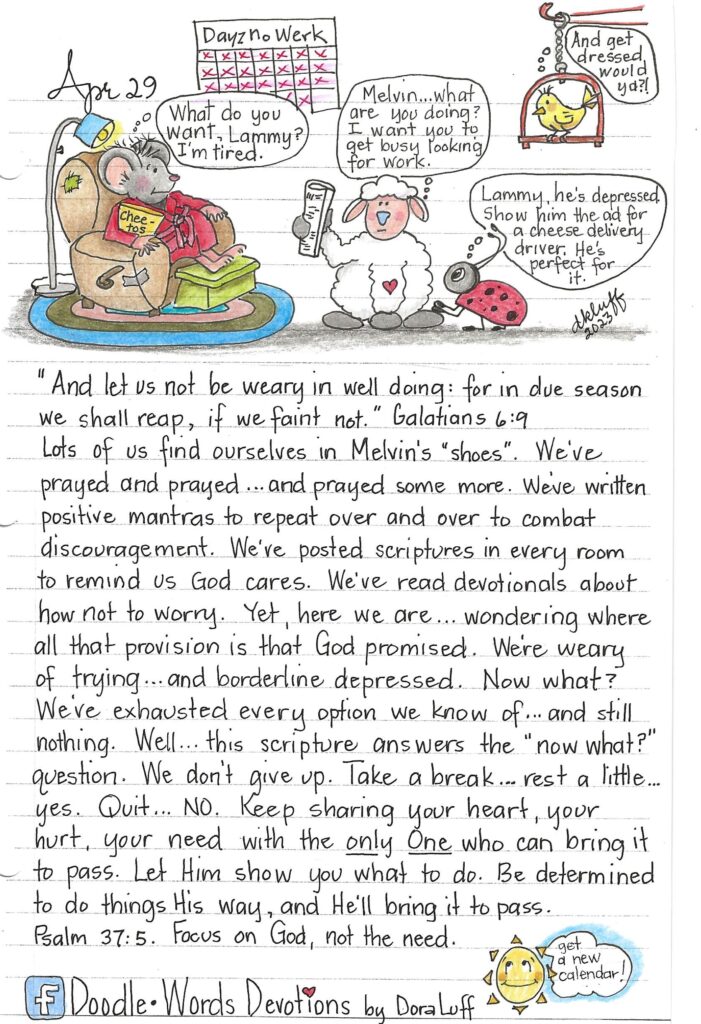 Dayz no Werk
Apr 29
What do you
want, Lammy?
I'm tired.
Melvin...what
are you doing?
I want you to
get busy looking
for work.
And get
dressed
would
ya?!
Chee-
tos
Lammy, he's depressed
Show him the ad for
a cheese delivery
driver. He's
perfect for
it.
dkluff
2023
"And let us not be weary in well doing: for in due season
we shall reap, if we faint not." Galatians 6:9
Lots of us find ourselves in Melvin's "shoes". We've
prayed and prayed...and prayed some more. We've written
positive mantras to repeat over and over to combat
discouragement. We've posted scriptures in every room
to remind us God cares. We've read devotionals about
how not to worry. Yet, here we are... wondering where
all that provision is that God promised. We're weary
of trying...and borderline depressed. Now what?
We've exhausted every option we know of...and still
nothing. Well...this scripture answers the "now what?"
question. We don't give up. Take a break... rest a little...
yes. Quit... NO. Keep sharing your heart, your
hurt, your need with the only One who can bring it
to pass. Let Him show you what to do. Be determined
to do things His way, and He'll bring it to pass.
Psalm 37:5. Focus on God, not the need.
get
a new
calendar!
f Doodle•Words Devotions by Dora Luff